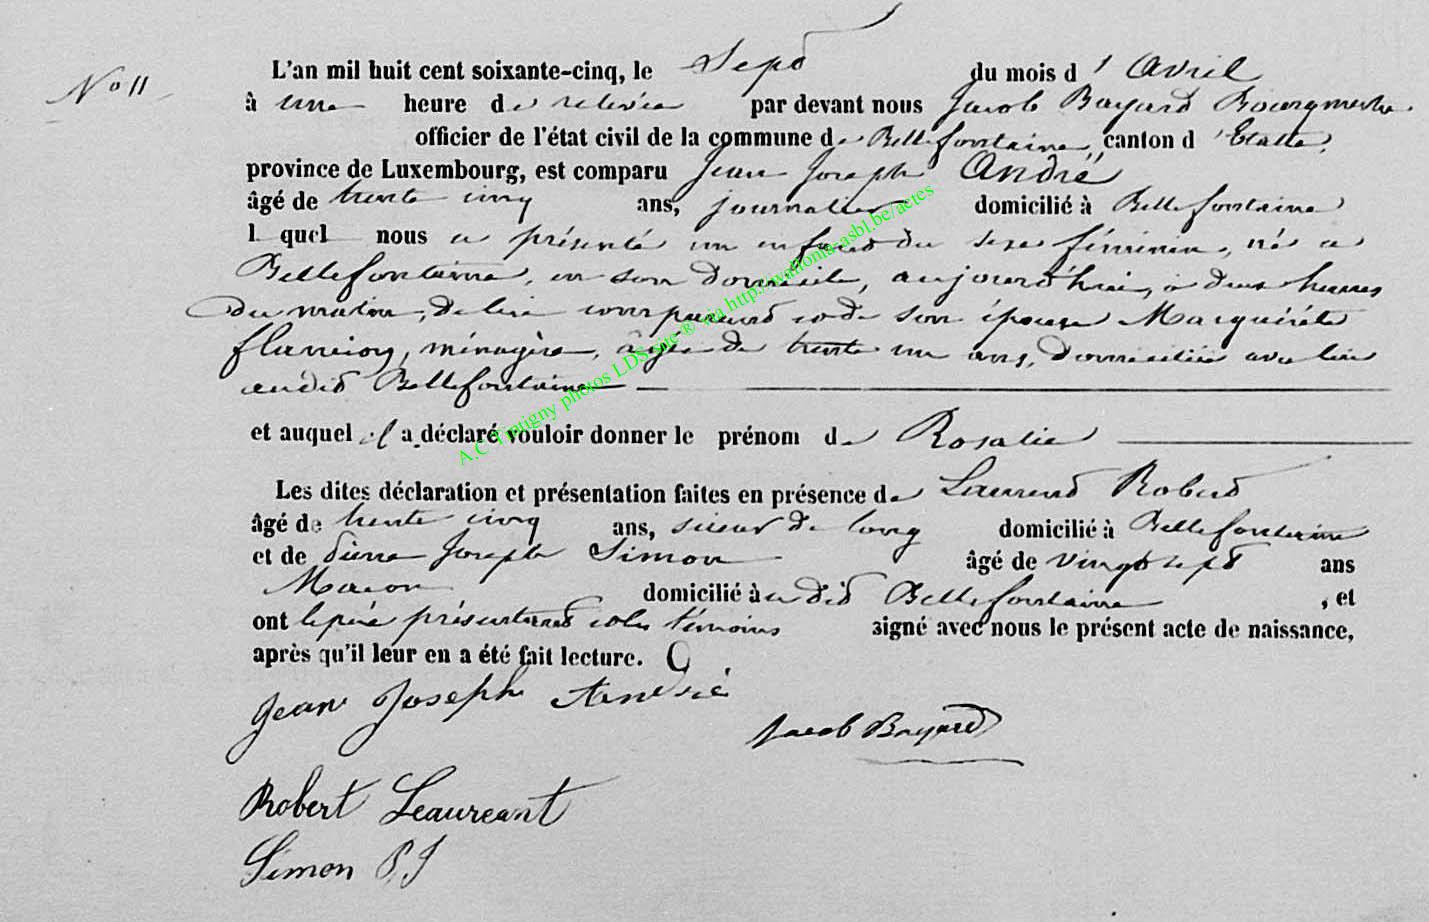 No 11
L'an mil huit cent soixante-cinq, le Sept du mois d' Avril
à une heure de relevée par devant nous Jacob Bayard Bourgmestre
officier de l'état civil de la commune de Bellefontaine, canton d'Etalle,
province de Luxembourg, est comparu Jean Joseph André
âgé de trente cinq ans, journalier domicilié à Bellefontaine
lequel nous a présenté un enfant du sexe féminin, né a
Bellefontaine, en son domicile, aujourd'hui, à deux heures
du matin, de lui comparant et de son épouse Marguérite
flamion, ménagère, agée de trente un ans, domiciliée avec lui
audit Bellefontaine
et auquel il a déclaré vouloir donner le prénom de Rosalie
Les dites déclaration et présentation faites en présence de Laurent Robert
âgé de trente cinq ans, scieur de long domicilié à Bellefontaine
et de Pierre Joseph Simon âgé de vingt sept ans
Macon domicilié à udit Bellefontaine, et
ont le père présentant et les témoins signé avec nous le présent acte de naissance,
après qu'il leur en a été fait lecture.
Jean Joseph André
Jacob Bayard
Robert Leaureant
Simon P J
A.C Tintigny photos LDS site ® via http://wallonia-asbl.be/actes